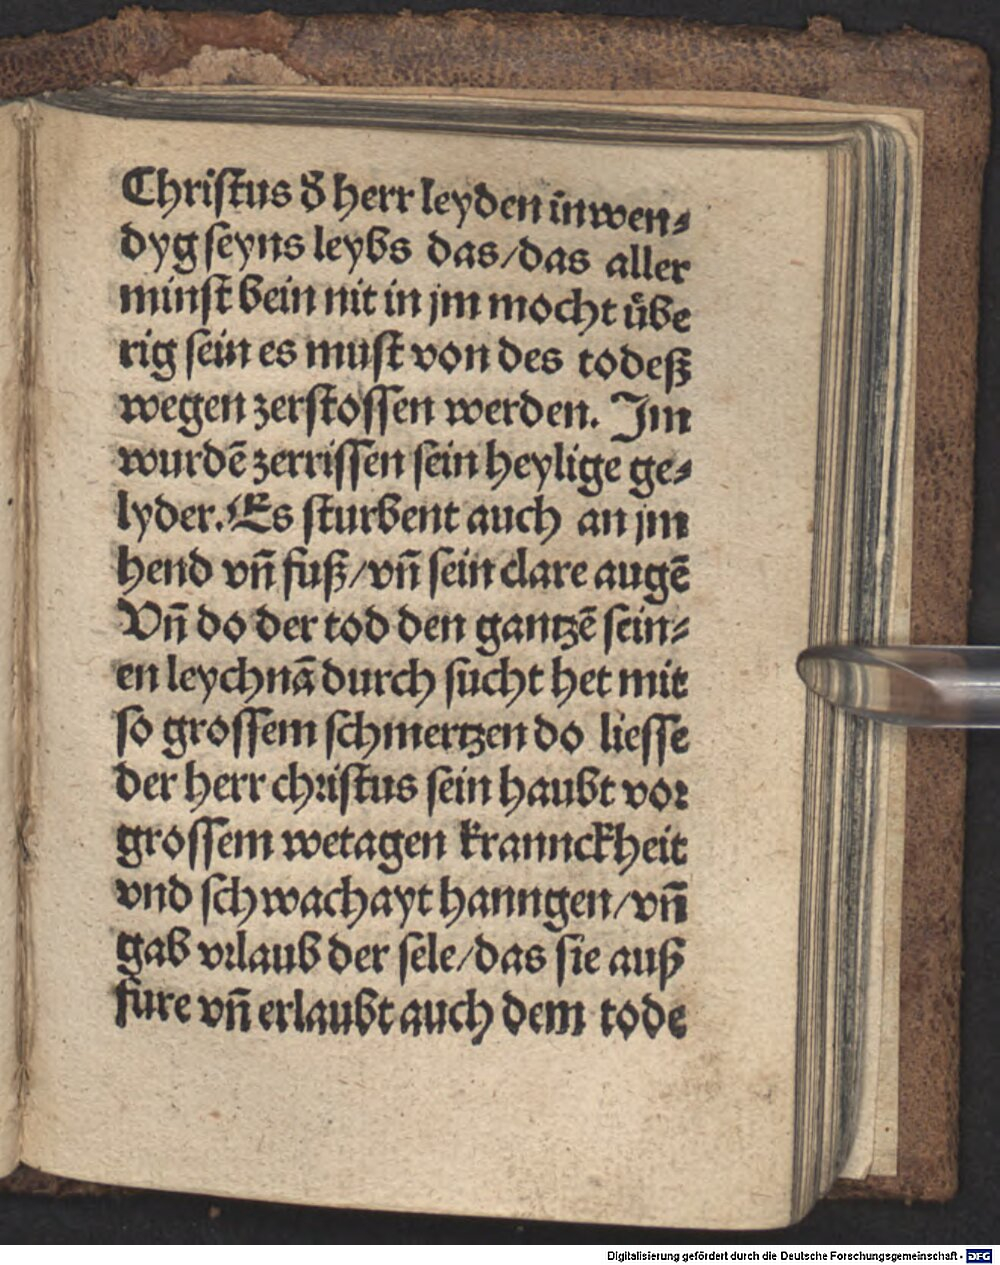 Christus d̕ herr leyden inwen⸗
dyg seyns leybs das/das aller
minst bein nit in jm mocht uͤbe
rig sein es must von des todeß
wegen zerstossen werden. Jm
wurdē zerrissen sein heylige ge⸗
lyder. Es sturbent auch an jm
hend vn̄ fuß/vn̄ sein clare augē
Vn̄ do der tod den gantzē sein⸗
en leychnā durch sucht het mit
so grossem schmertzen do liesse
der herr christus sein haubt vor
grossem wetagen krannckheit
vnd schwachayt hanngen/vn̄
gab vrlaub der sele/das sie auß
fure vn̄ erlaubt auch dem tode
Digitalisierung gefördert durch die Deutsche Forschungsgemeinschaft - DFG